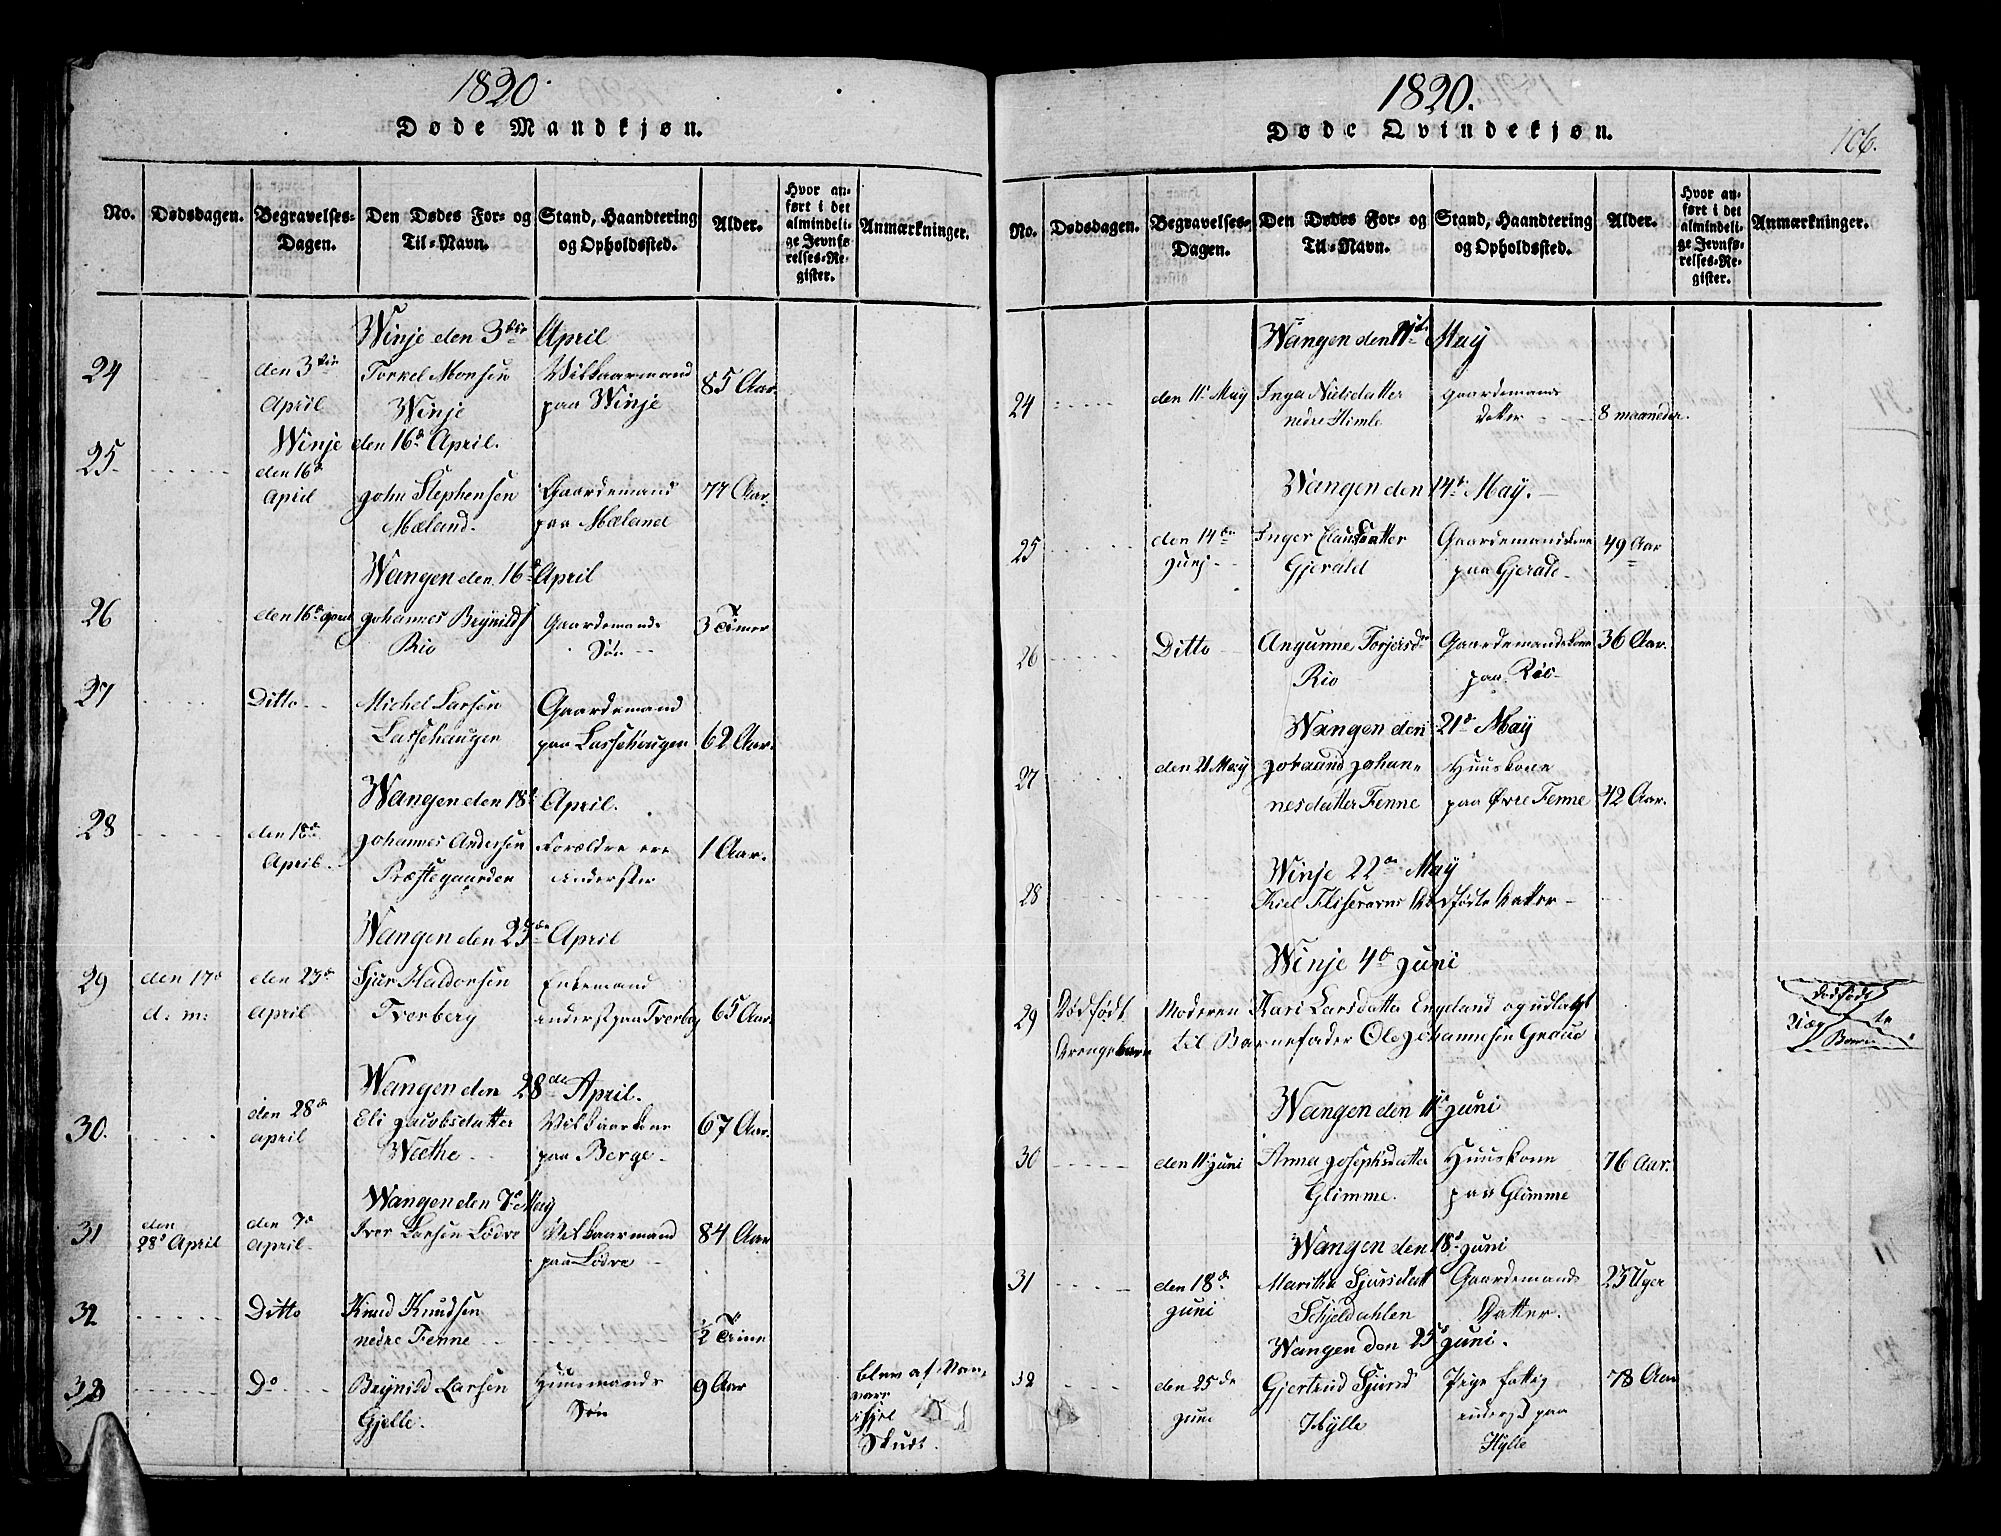 1820.
Døde Mandkjøn.
No. Dødsdagen. Begravelses-Dagen. Den Dødes For- og Til-Navn. Stand, Haandtering og Opholdssted. Alder. Hvor anført i det almindelige Jevnførelses-Register. Anmærkninger.
Winje den 3die April
24 den 3die Torkel Monsen Vilkaarmand 85 Aar.
April Winje paa Winje
Winje den 16de April.
25. den 16de
April John Stephensen Gaardemand 77 Aar.
Mæland. paa Mæland
Wangen den 16de April
26 den 16de April Johannes Brynilds Gaardemands 3 Timer
Rio Søn
27 Ditto Michel Larsen Gaardemand
Lassehaugen paa Lassehaugen 62 Aar.
Wangen den 18de April.
28 den 18de Johannes Andersen Forældre ere 1 Aar.
April. Præstegaarden
Wangen den 23de April
29 den 17de den 23de Sjur Haldorsen Enkemand
d: m: April Tverberg inderst paa Tverberg 65 Aar.
Wangen den 28de April.
30. den 28de Eli Jacobsdatter Vilkaarkone 67 Aar.
April paa Berge
Wangen den 7de May
31 den den 7de Iver Larsen Lødve Vilkaarmand 84 Aar
28de April April paa Lødve
32 Ditto Knud Knudsen
nedre Fenne 1/2 Time
33 Do Brynild Larsen Huusmands 9 Aar
Gjelle. Søn
blev af
Skudt.
1820.
Døde Qvindekjøn.
106.
No. Dødsdagen. Begravelses-Dagen. Den Dødes For- og Til-Navn. Stand, Haandtering og Opholdssted. Alder. Hvor anført i det almindelige Jevnførelses-Register. Anmærkninger.
Wangen den 11de May
24 den 11te May Inga Nielsdatter gaardemands
nedre Himle Dotter 8 maaneder.
Wangen den 14de May.
25 den 14de Inger Clausdatter Gaardemandskone 49 Aar
Juni Gjerald paa Gjerald
26 Ditto Angunne Torjersdr Gaardemandskone 36 Aar.
Rio paa Rio
Wangen den 21de May
27 den 21 May Joraand Johan- Huuskone
nesdatter Fenne paa Øvre Fenne 42 Aar.
Winje 22de May
28 dødfødte Datter
Winje 4de Juni
29 Dødfødt Moderen Kari Larsdatter Engeland og udlagt
Drengebarn til Barnefader Ole Johannesen Graue
Dødfødt
Uægte
Barn
Wangen den 11te Juni
30 den 11te Juni Anna Josephsdatter Huuskone 76 Aar.
Glimme. paa Glimme
Wangen den 18de Juni
31 den 18de Maritha Sjursdatt Gaardemands 23 Uger
Juni Schjeldahlen Datter.
Wangen den 25de Juni.
32 den 25de Gjertrud Sjursd Pige fattig 78 Aar
Juni Hylle inderst paa
Hylle